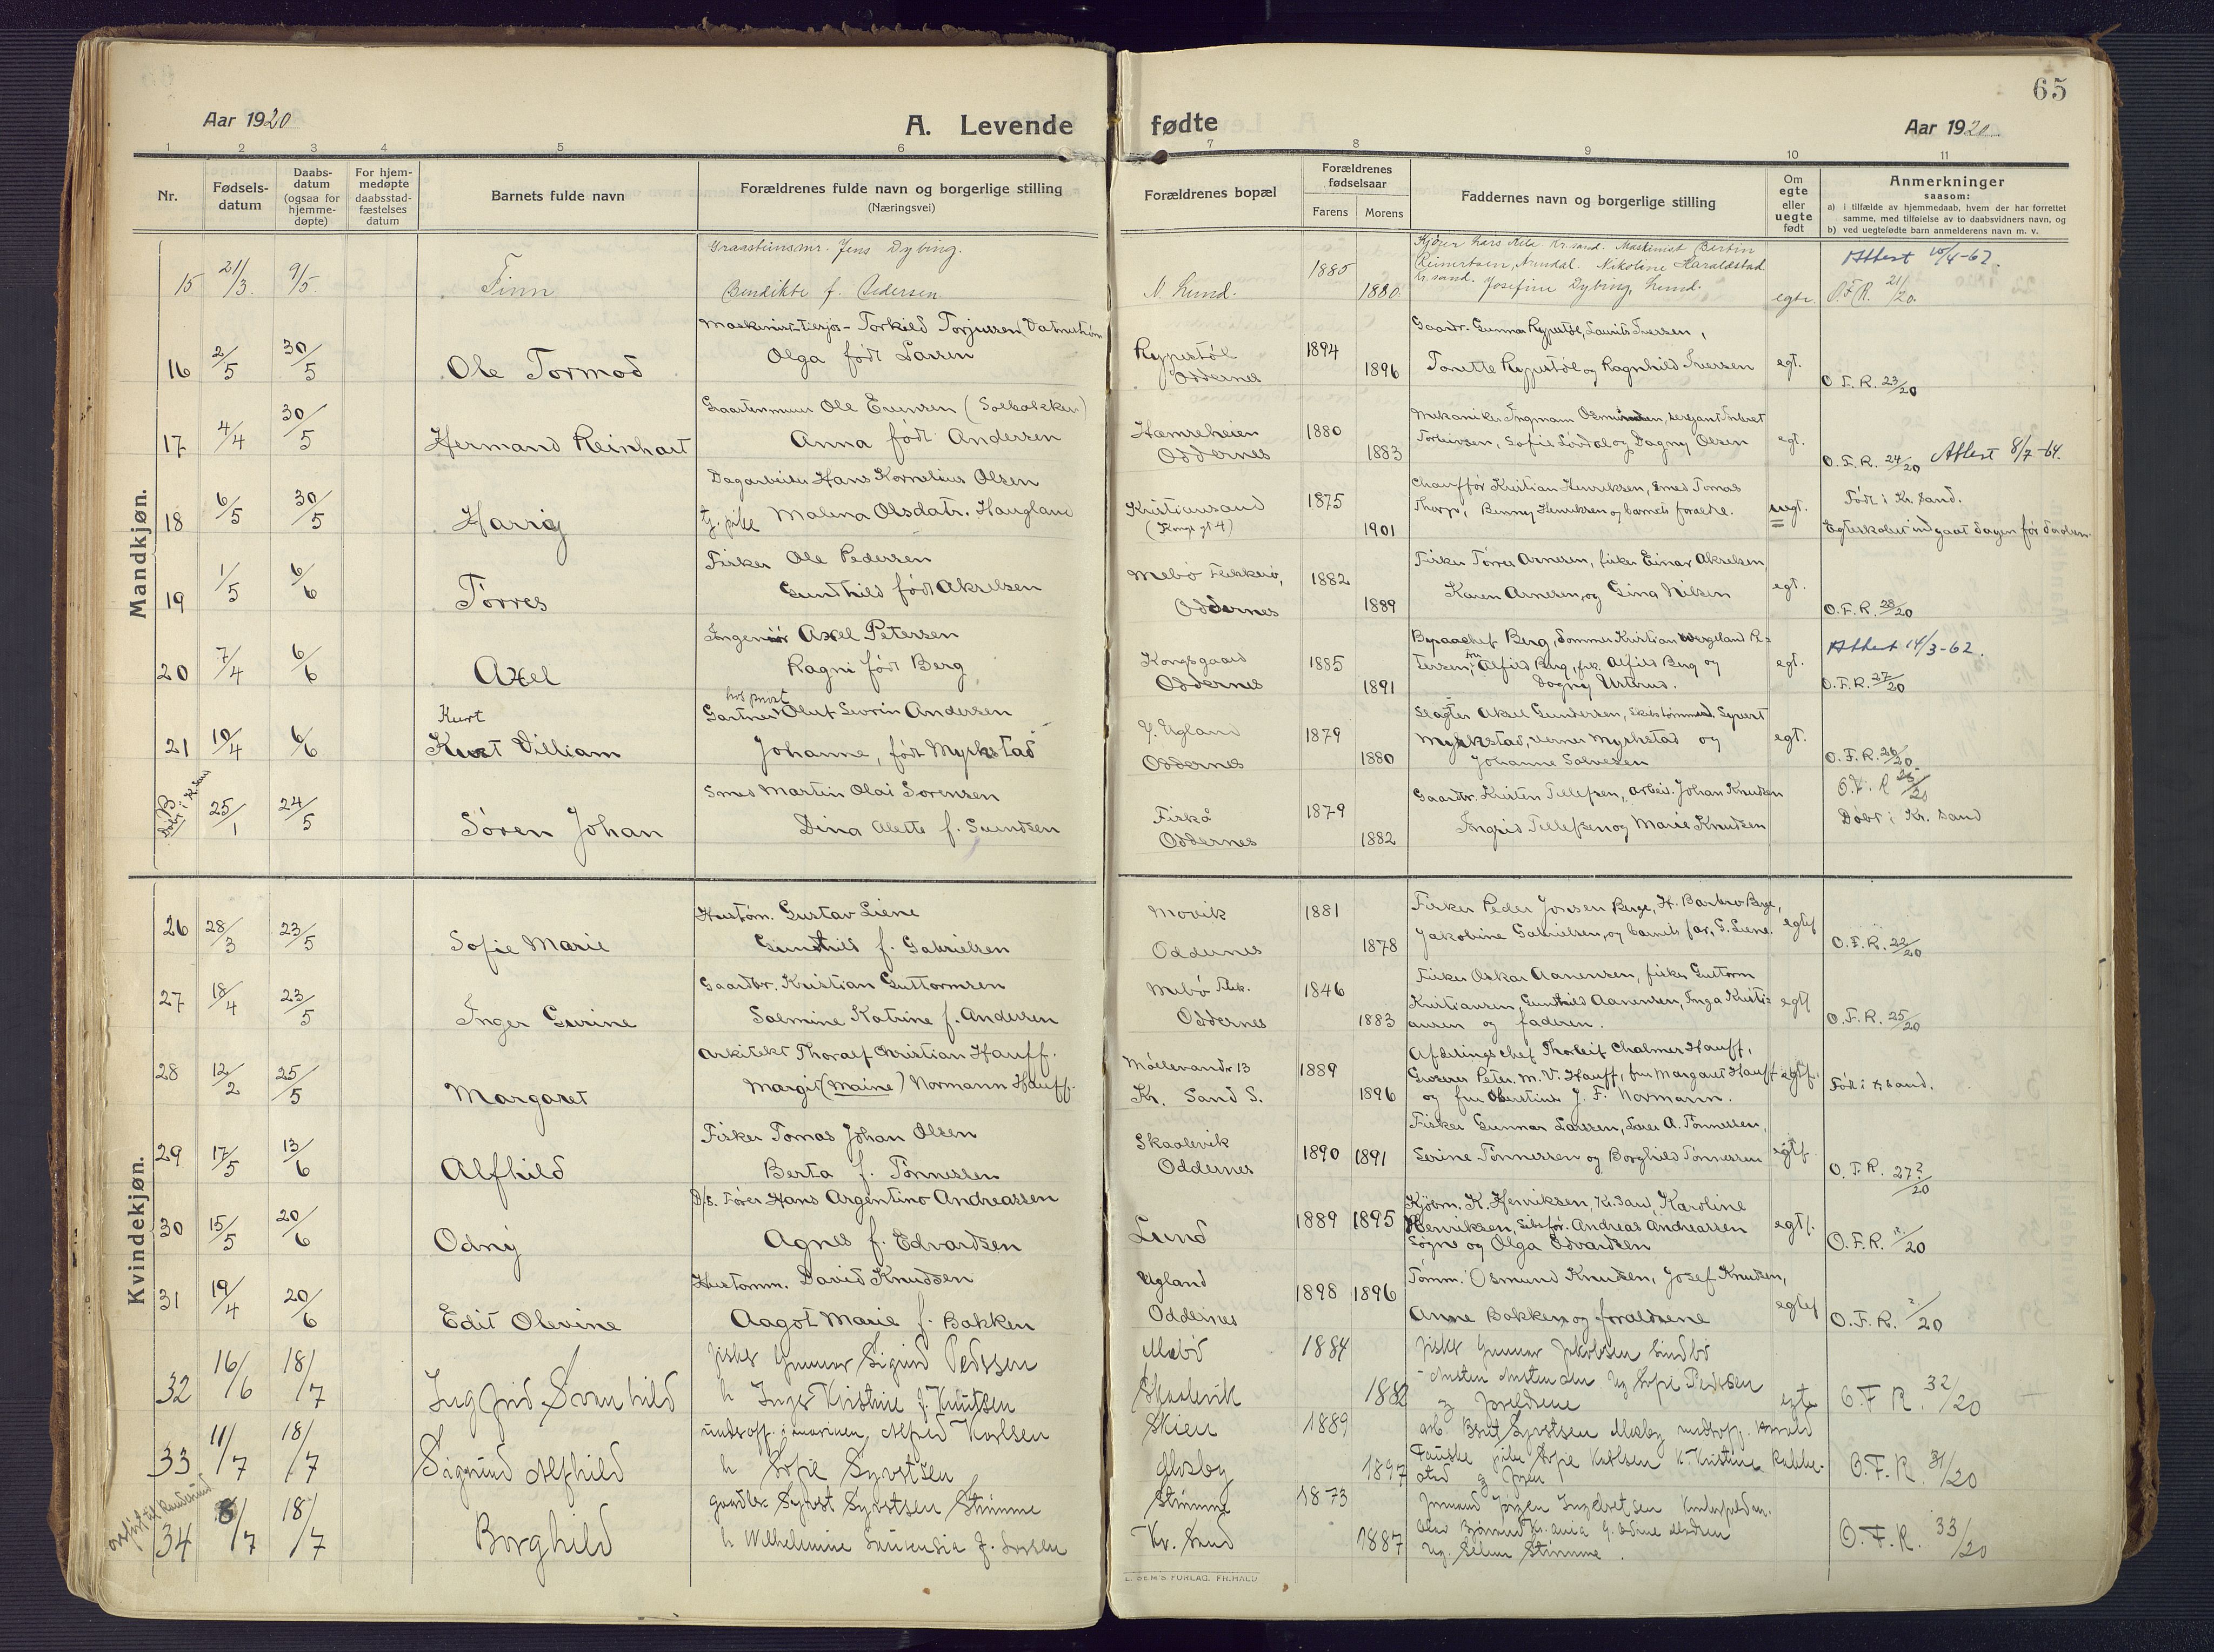 65
Aar 1920
A. Levende
fødte
Aar 1920
1 2 3 4 5 6 7 8 9 10 11
Nr.
Fødsels-
datum
Daabs-
datum
(ogsaa for
hjemme-
døpte)
For hjem-
medøpte
daabsstad-
fæstelses
datum
Barnets fulde navn
Forældrenes fulde navn og borgerlige stilling
(Næringsvei)
Forældrenes bopæl
Forældrenes
fødselsaar
Farens Morens
Faddernes navn og borgerlige stilling
Om
egte
eller
uegte
født
Anmerkninger
saasom:
a) i tilfælde av hjemmedaab, hvem der har forrettet
samme, med tilføielse av to daabsvidners navn, og
b) ved uegtefødte barn anmelderens navn m. v.
Mandkjøn.
15 21/3. 9/5. Finn
Jens Dybing.
Bendikte f. Pedersen
N. Lund. 1885 1880
Josefine Dybing, Lund.
egte. Attest 10/4-62.
O.F.R. 21/20.
16 2/5 30/5 Ole Tormod
Torkild Torjussen
Olga født Larsen
Rypestøl
Oddernes
1894 1896
Gaardbr. Gunnar Rypestøl, Laurits Iversen,
Tonette Rypestøl og Ragnhild Iversen
egt. O.F.R. 23/20
17 4/4 30/5 Hermand Reinhart
Ole Evensen (Solbakken)
Anna født Andersen
Hamreheien
Oddernes
1880 1883
Sofie og Dagny Olsen
egt. O.F.R. 24/20 Attest 8/7-64.
18 6/5 30/5 Harrig
Dagarbeider Hans Kornelius Olsen
tj. pike Malena Olsdatr. Haugland
Kristiansand
1875 1901
Chauffør Kristian Henriksen, smed Tomas
Thorp, Benny Henriksen og barnets forældre.
uegt. Født i Kr. sand.
Egteskabet indgaat dagen før daaben.
19 1/5 6/6 Tørres
Fisker Ole Pedersen
Gundhild født Akselsen
Mebø Flekkerø,
Oddernes
1882 1889
Fisker Tørres Arnesen, fisker Einar Akselsen,
Karen Arnesen, og Gina Nilsen
egt. O.F.R. 28/20
20 7/4 6/6 Axel
Ingeniør Axel Petersen
Ragni født Berg
Kongsgaard
Oddernes
1885 1891
Alfild Berg, frk. Alfild Berg og
Dagny
egt. Attest 14/3-62.
O.F.R. 27/20
21 10/4 6/6 Kurt
Kurt Villiam
Gartner Oluf Sevrin Andersen
Johanne, født Myrkstad
Ø. Ugland
Oddernes
1879 1880
Slagter Aksel Gundersen, Syvert
Myrkstad, Verner Myrkstad og
Johanne Salvesen
egt. O.F.R. 26/20.
25/1 24/5 Søren Johan
Smed Martin Olai Sørensen
Dina Alette f. Svendsen
Fiskå
Oddernes
1879 1882
Gaardbr. Kristen Tellefsen, arbeid. Johan Knudsen
Ingrid Tellefsen og Marie Knudsen
Døbt i Kr. sand
Kvindekjøn.
26 28/3 23/5 Sofie Marie
Hustøm. Gustav Liene
Gundhild f. Gabrielsen
Movik
Oddernes
1881 1878
Fisker Peder Jonsen Berge, H. Barbro Berge,
Jakobine Gabrielsen, og barnets far, G. Liene.
egtef O.F.R. 22/20
27 18/4 23/5 Inger Gurine
Gaardbr. Kristian Guttormsen
Salmine Katrine f. Andersen
Mebø Flek.
Oddernes
1846 1883
Fisker Oskar Aanensen, fisker Guttorm
Kristiansen, Gunhild Aanensen, Inga Kristi-
ansen og faderen.
egtf O.F.R. 25/20
28 12/2 25/5 Margaret
Arkitekt Thoralf Christian Hauff.
Margit (Maine) Normann Hauff.
Møllevandv 13
Kr. Sand S.
1889 1896
Afdelingschef Thorleif Chalmer Hauff,
Grosserer Peter. M. V. Hauff, fru Margaret Hauff
og fru J. F. Normann.
egtf. Født i Kr. sand.
29 17/5 13/6 Alfhild
Fisker Tomas Johan Olsen
Berta f. Tønnessen
Skaalevik
Oddernes
1890 1891
Fisker Gunnar Larsen, Lars A. Tønnessen,
Serine Tønnessen og Borghild Tønnessen
egtf. O.F.R. 27?/20
30 15/5 20/6 Odny
D/s. Fører Hans Argentino Andreassen
Agnes f. Edvardsen
Lund
1889 1895
Kjøbm. K. Henriksen, Kr. Sand, Karoline
Henriksen, Andreas Andreassen
Søgne og Olga Edvardsen
egtf. O.F.R. /20
31 19/4 20/6 Edit Olevine
Hustømm. David Knudsen
Aagot Marie f. Bakken
Ugland
Oddernes
1898 1896
Tømm. Osmund Knudsen, Josef Knudsen,
Anne Bakken og forældrene
egtef O.F.R. /20
32 16/6 18/7 Ingfrid Svanhild
fisker Gunnar Sigurd Pedersen
h Inger Kristine f. Knutsen
Mebø
Skaalevik
1884 1882
fisker Gunnar Jakobsen Lindbø
og Sofie Pedersen
og forældrene
egte O.F.R. 32/20
33 11/7 18/7 Sigrund Alfhild
underoff. i marinen, Alfred Karlsen
h Sofie Syvertsen
Skien
Mosby
1889 1897
arb. Syvertsen Mosby underoff. Harald
pike Sofie Karlsen Kristine Rabbe-
stad
O.F.R. 31/20
34 8/7 18/7 Borghild
gaardbr. Syvert Syvertsen Strømme
h Wilhelmine f. Larsen
Strømme
Kr. Sand
1873 1887
Strømme.
O.F.R. 33/20
E. SEM'S FORLAG. FR.HALD